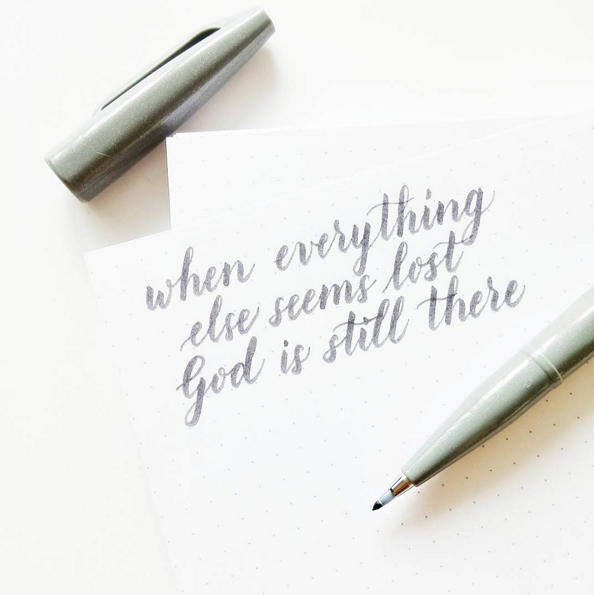 when everything
else seems lost
God is still there